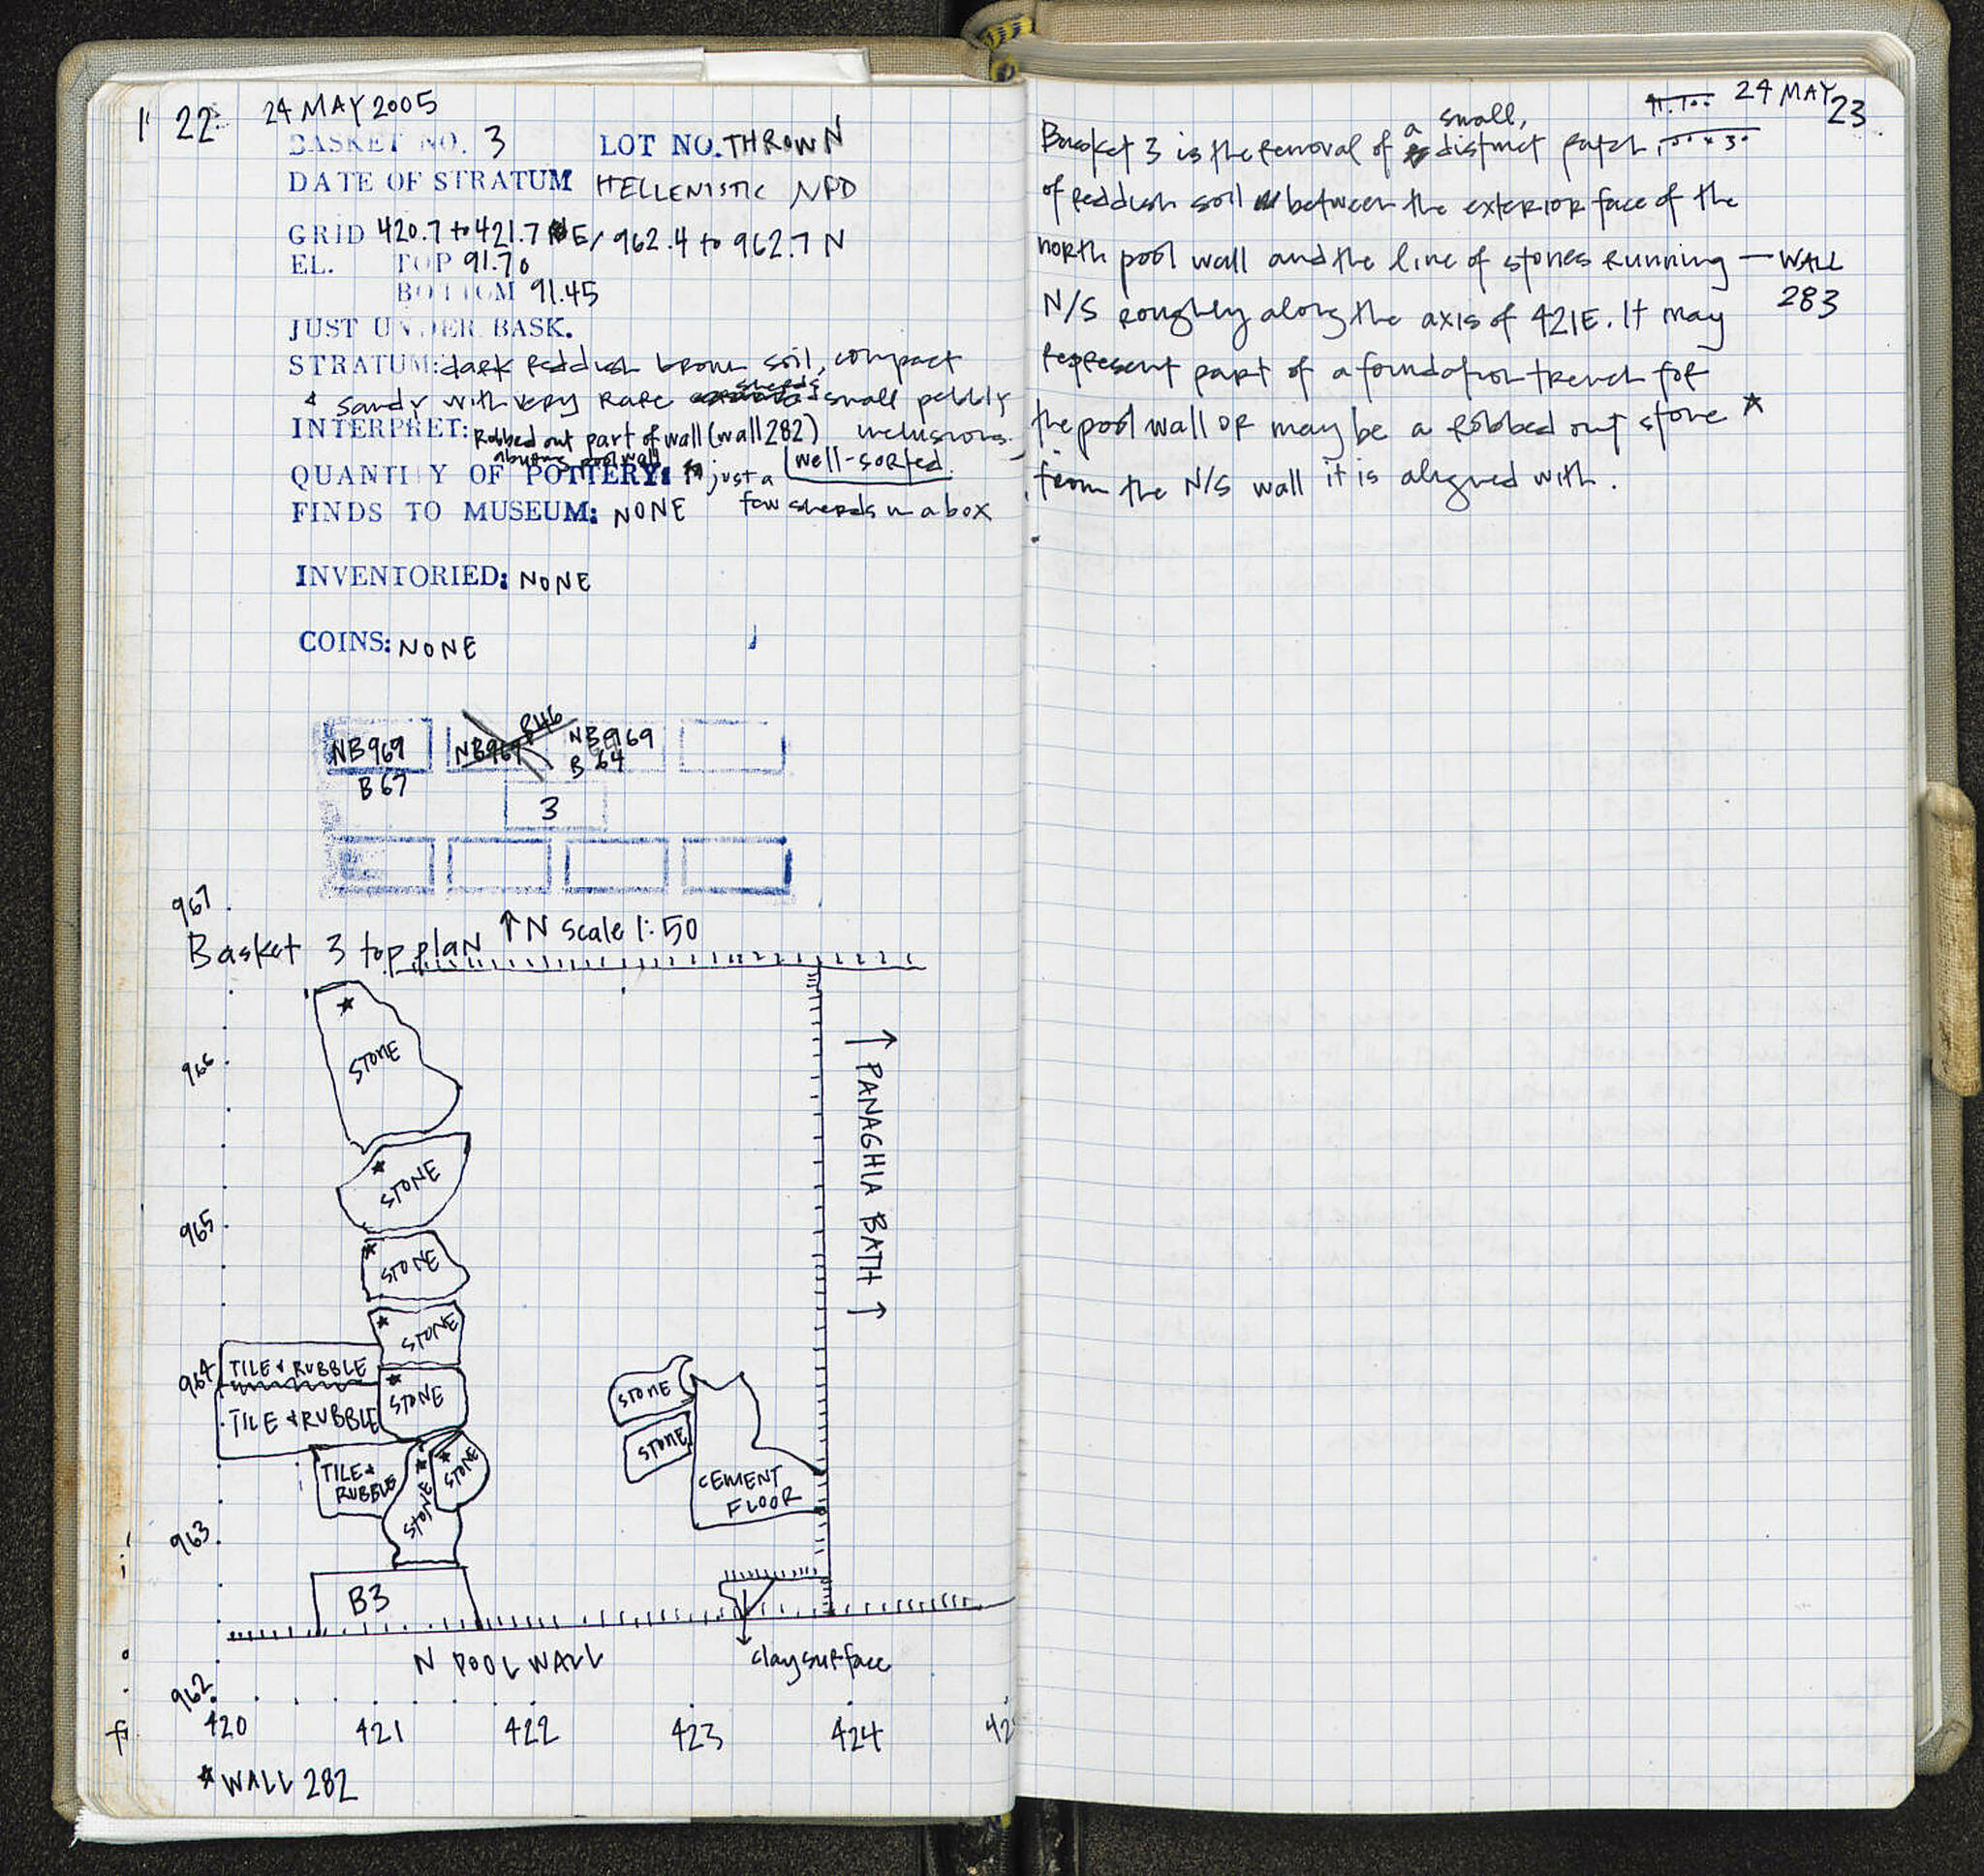 22 24 MAY 2005
BASKET NO. 3 LOT NO. THROWN
DATE OF STRATUM HELLENISTIC NPD
GRID 420.7 to 421.7 E/962.4 to 962.7 N
EL. TOP 91.70
BOTTOM 91.45
JUST UNDER BASK.
STRATUM: dark reddish brown soil, compact
& sandy with very rare sherds small pebbly
inclusions.
well-sorted.
INTERPRET: Robbed out part of wall (wall 282)
abutting pool wall
QUANTITY OF POTTERY: just a
few sherds in a box
FINDS TO MUSEUM: NONE
INVENTORIED: NONE
COINS: NONE
NB969
B67
NB969 B46
NB969
B 64
3
Basket 3 top plan ↑N Scale 1:50
967
966
965
964
963
962
STONE
STONE
STONE
STONE
STONE
STONE
STONE
TILE & RUBBLE
TILE & RUBBLE
TILE &
RUBBLE
STONE
STONE
CEMENT
FLOOR
← PANAGHIA BATH →
B3
N POOL WALL
clay surface
420 421 422 423 424
* WALL 282
24 MAY 23
Basket 3 is the removal of a small, distinct patch
of reddish soil between the exterior face of the
north pool wall and the line of stones running — WALL
283
N/S roughly along the axis of 421E. It may
represent part of a foundation trench for
the pool wall or may be a robbed out stone *
from the N/S wall it is aligned with.